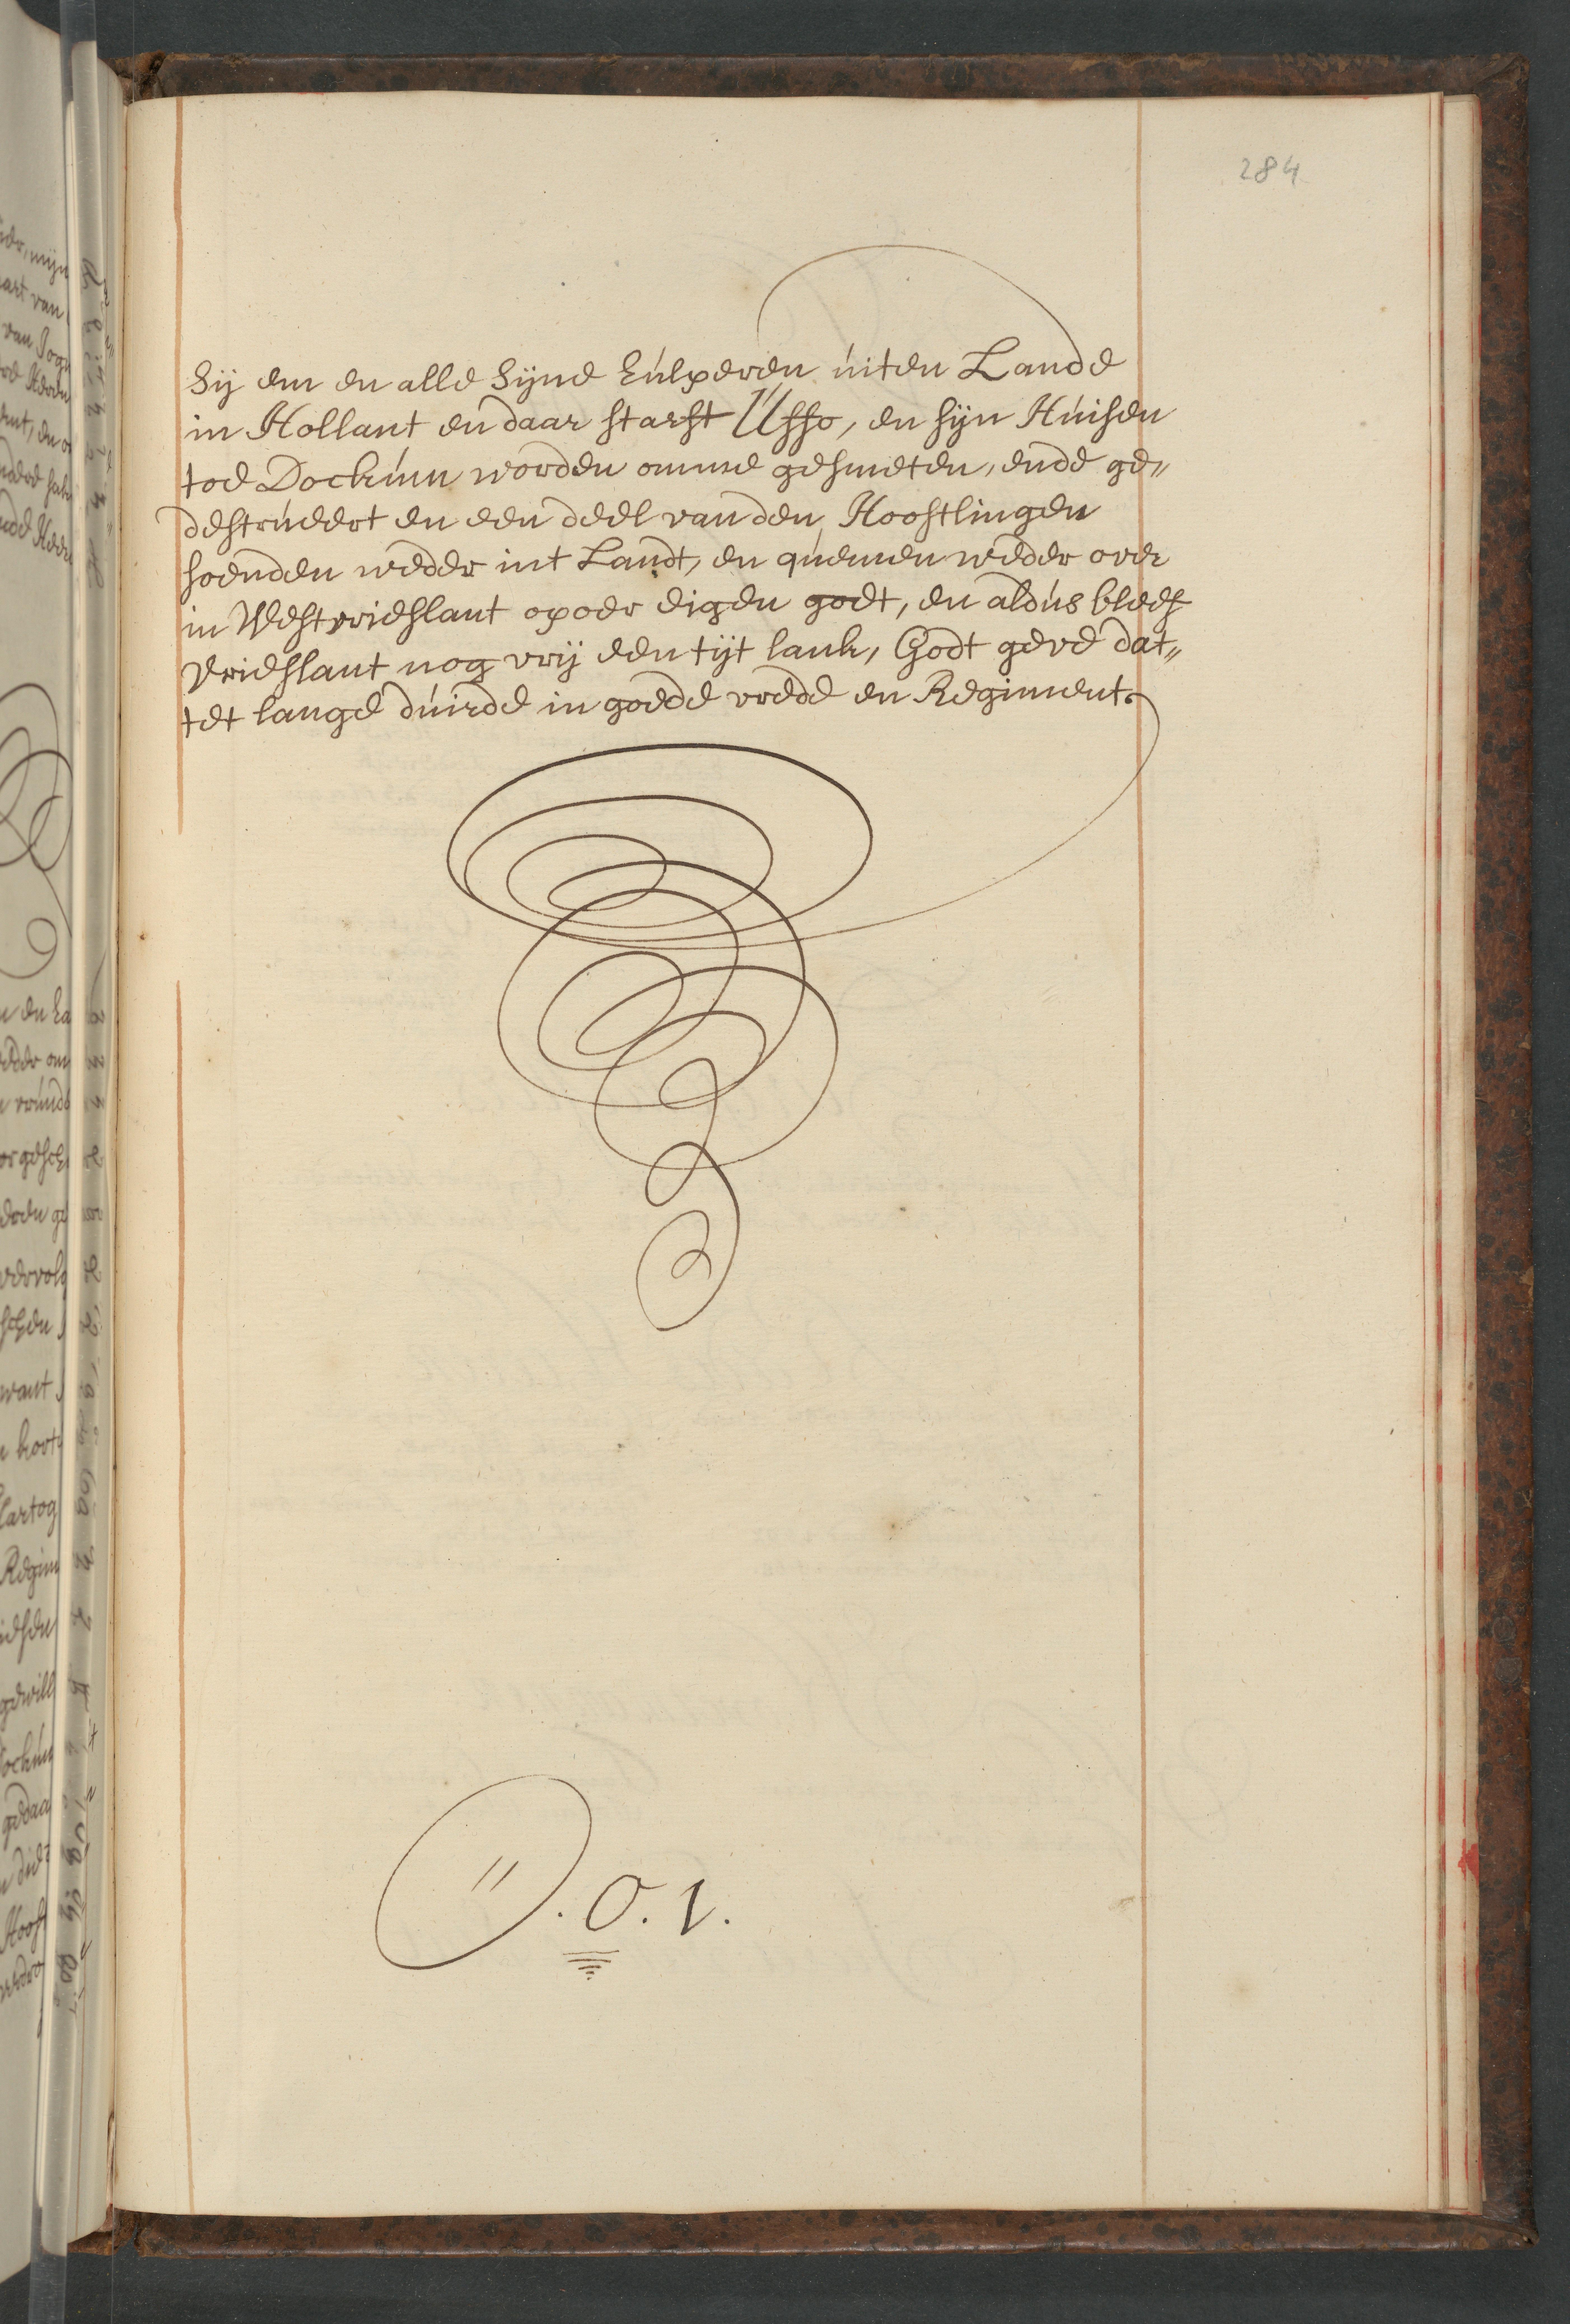 284
Sij em en alle Sijne hulperen uiten Lande
in Hollant en daar starft Usso, en sijn Huisen
toe Dockum worden omme gesmeten, ende ge„
destrueert en een deel van den Hooftlingen
soenden weder int Landt, en quemen weder over
in Westvrieslant op oer eigen goet, en aldus bleef
Vrieslant nog vrij een tijt lank, Godt geve dat„
tet lange duirde in goede vrede en Regiment.
O. V.